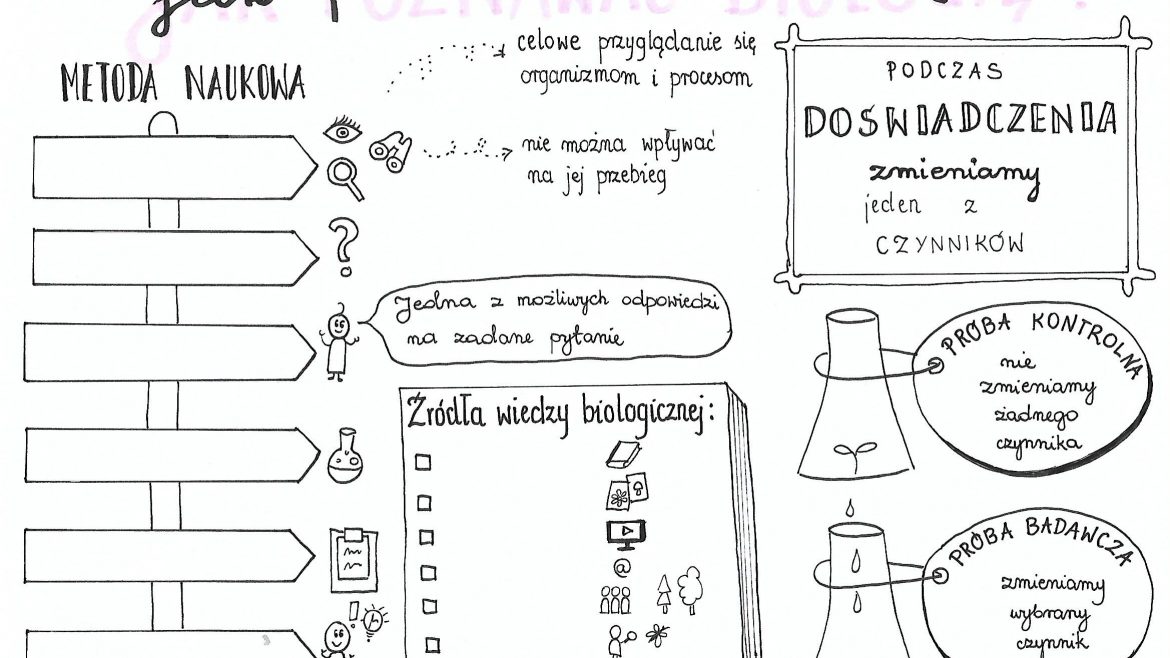 JAK POZNAWAĆ BIOLOGIĘ?
METODA NAUKOWA
celowe przyglądanie się
organizmom i procesom
nie można wpływać
na jej przebieg
?
Jedna z możliwych odpowiedzi
na zadane pytanie
!
Źródła wiedzy biologicznej:
@
PODCZAS
DOŚWIADCZENIA
zmieniamy
jeden z
CZYNNIKÓW
PRÓBA KONTROLNA
nie
zmieniamy
żadnego
czynnika
PRÓBA BADAWCZA
zmieniamy
wybrany
czynnik